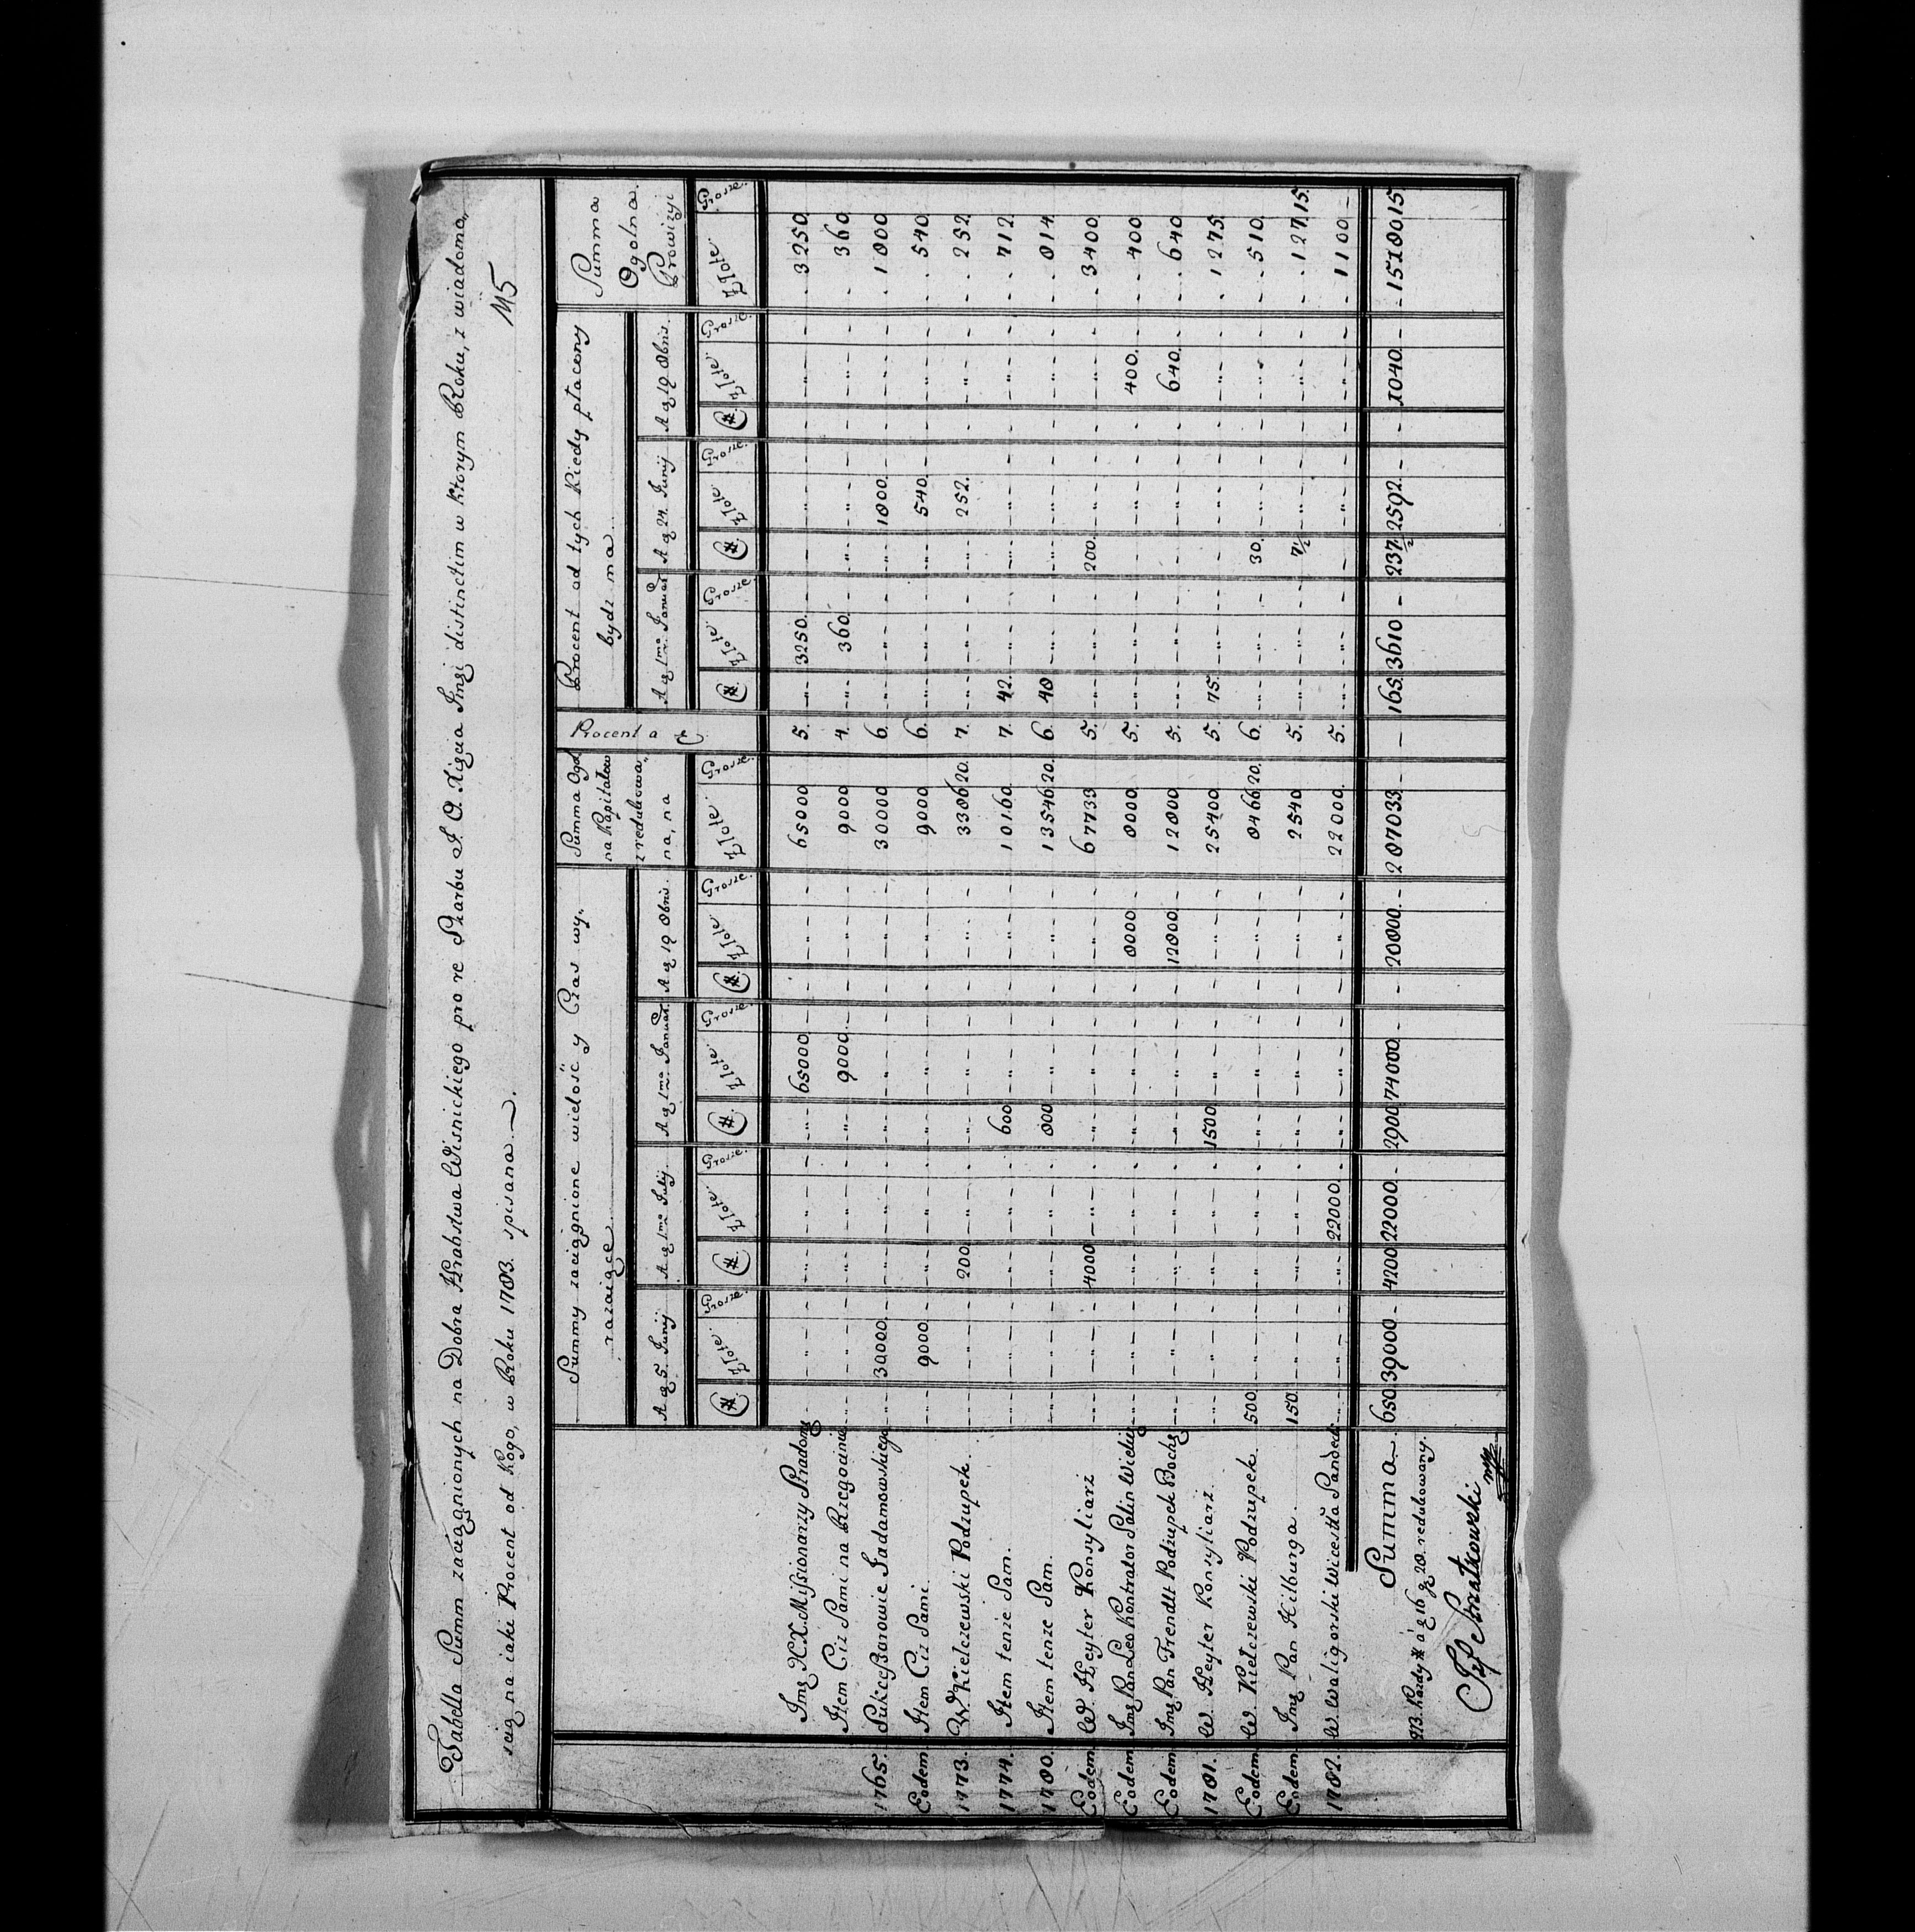 Tabella Summ zaciągnionych na Dobra Hrabstwa Wisnickiego pro re Skarbu J. O. Xięcia Jmci distinctim w ktorym Roku, z wiadoma,
scią na iaki Procent od Kogo, w Roku 1783. spisana.
115
Summy zaciągnione wielość y Czas wy,
razaiące
Summa Ogol
na Kapitałow
zredukowa,
na, na
Procent a
Procent od tych kiedy płacony
bydz ma
Summa
Ogolna
Prowizyi
A q 5. Junij
A q 1ma Julij
A q 1ma Januar
A q 19 Obris.
A q 1ma Januar
A q 24 Junij
A q 19 Obris.
# Złote. Grosze. # Złote. Grosze. # Złote. Grosze. # Złote. Grosze. Złote. Grosze. # Złote. Grosze. # Złote. Grosze. # Złote. Grosze. Złote. Grosze.
Jmę XX. Missionarzy Stradomę 65000. 65000 5. 3250. 3250.
Item Ciż Sami na Rzegocinie 9000. 9000 4. 360. 360
1765. Sukceßorowie Sadamowskiego 30000. 30000 6. 1800. 1800
Eodem. Item Ciż Sami. 9000. 9000 6. 540. 540
1773. W. Kielczewski Podzupek. 200. 3386 20. 7. 252. 252
1774. Item tenże Sam. 600. 10160. 7. 42. 712
1780. Item tenże Sam. 800. 13546 20. 6. 48. 814
Eodem. W. Heyter Konsyliarz 4000. 67733 5. 200. 3400
Eodem. Jmę Pan Leo Kontrator Salin Wieliz 8000. 8000. 5. 400. 400
Eodem. Jmę Pan Frendt Podżupek Bochę 12000. 12000 5. 640. 640
1781. W. Heyter Konsyliarz. 1500. 25400. 5. 75. 1275.
Eodem. W. Kielczewski Podzupek. 500. 8466 20. 6. 30. 510
Eodem. Jmę Pan Hilburga. 150. 2540 5. 7½ 127. 15.
1782. W. Waligorski Wicestta Sandecki 22000. 22000. 5. 1100 -
Summa. 650. 39000 - 4200 22000. - 2900 74000. - - 20000. - 287033 - - 165. 3610 - 237½ 2592. - - 1040. - 15180 15
NB. każdy # á ƶ 16 g 20. redukowany.